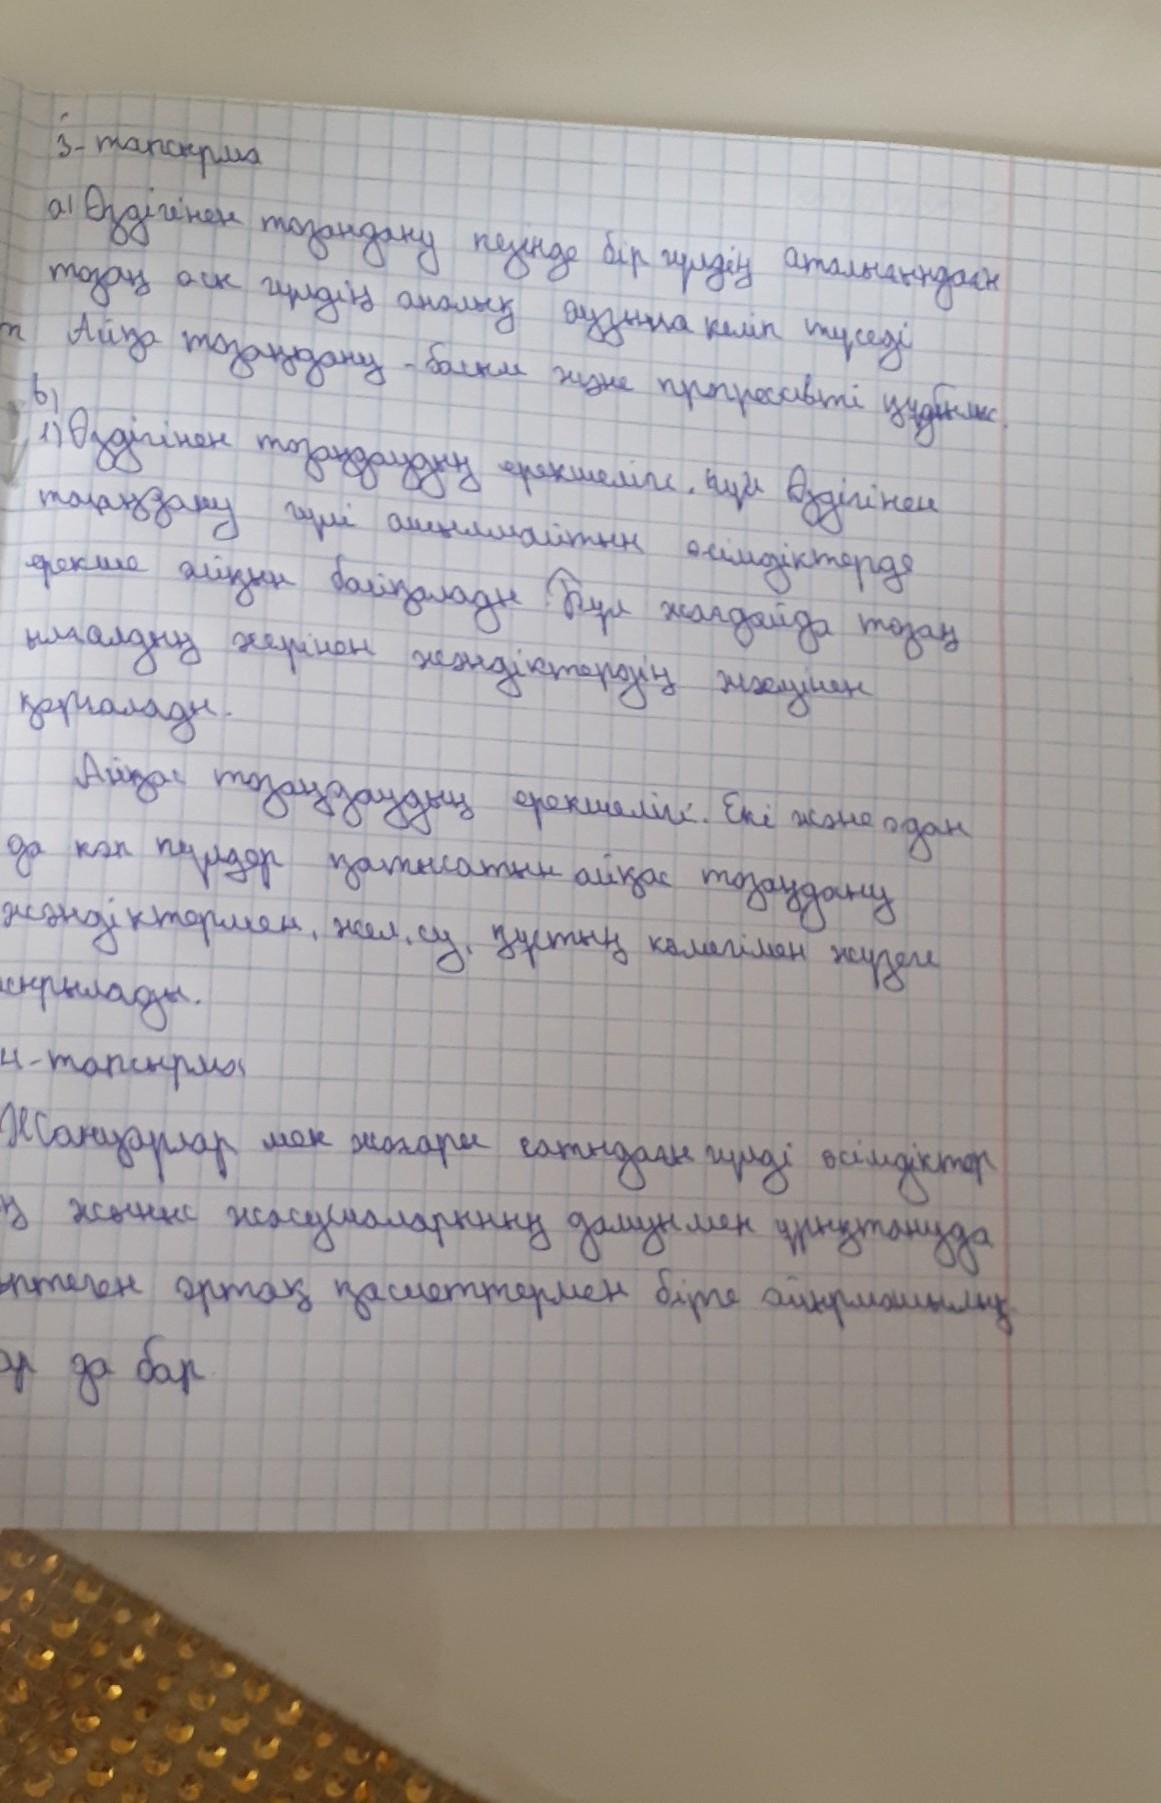 3-тапсырма
а) Өздігінен тозандану кезінде бір гүлдің аталығындағы
тозаң осы гүлдің аналық аузына келіп түседі
Айқа тозаңдану - басым және прогрессивті құбылыс.
b)
1) Өздігінен тозаңдаудың ерекшелігі. Өздігінен
тозаңдану гүлі ашылмайтын өсімдіктерде
ерекше айқын байқалады Бұл жағдайда тозаң
ылғалдың жерінен жәндіктердің жеуінен
қорғалады.
Айқас тозаңдаудың ерекшелігі. Екі және одан
да көп гүлдер қатысатын айқас тозаңдану
жәндіктермен, жел, су, құстың көмегімен жүзеге
сырылады.
4-тапсырма
Жануарлар мен жоғары сатыдағы гүлді өсімдіктер
ң жыныс жасушаларының дамуымен ұрықтануда
өптеген ортақ қасиеттермен бірге айырмашылық
ар да бар